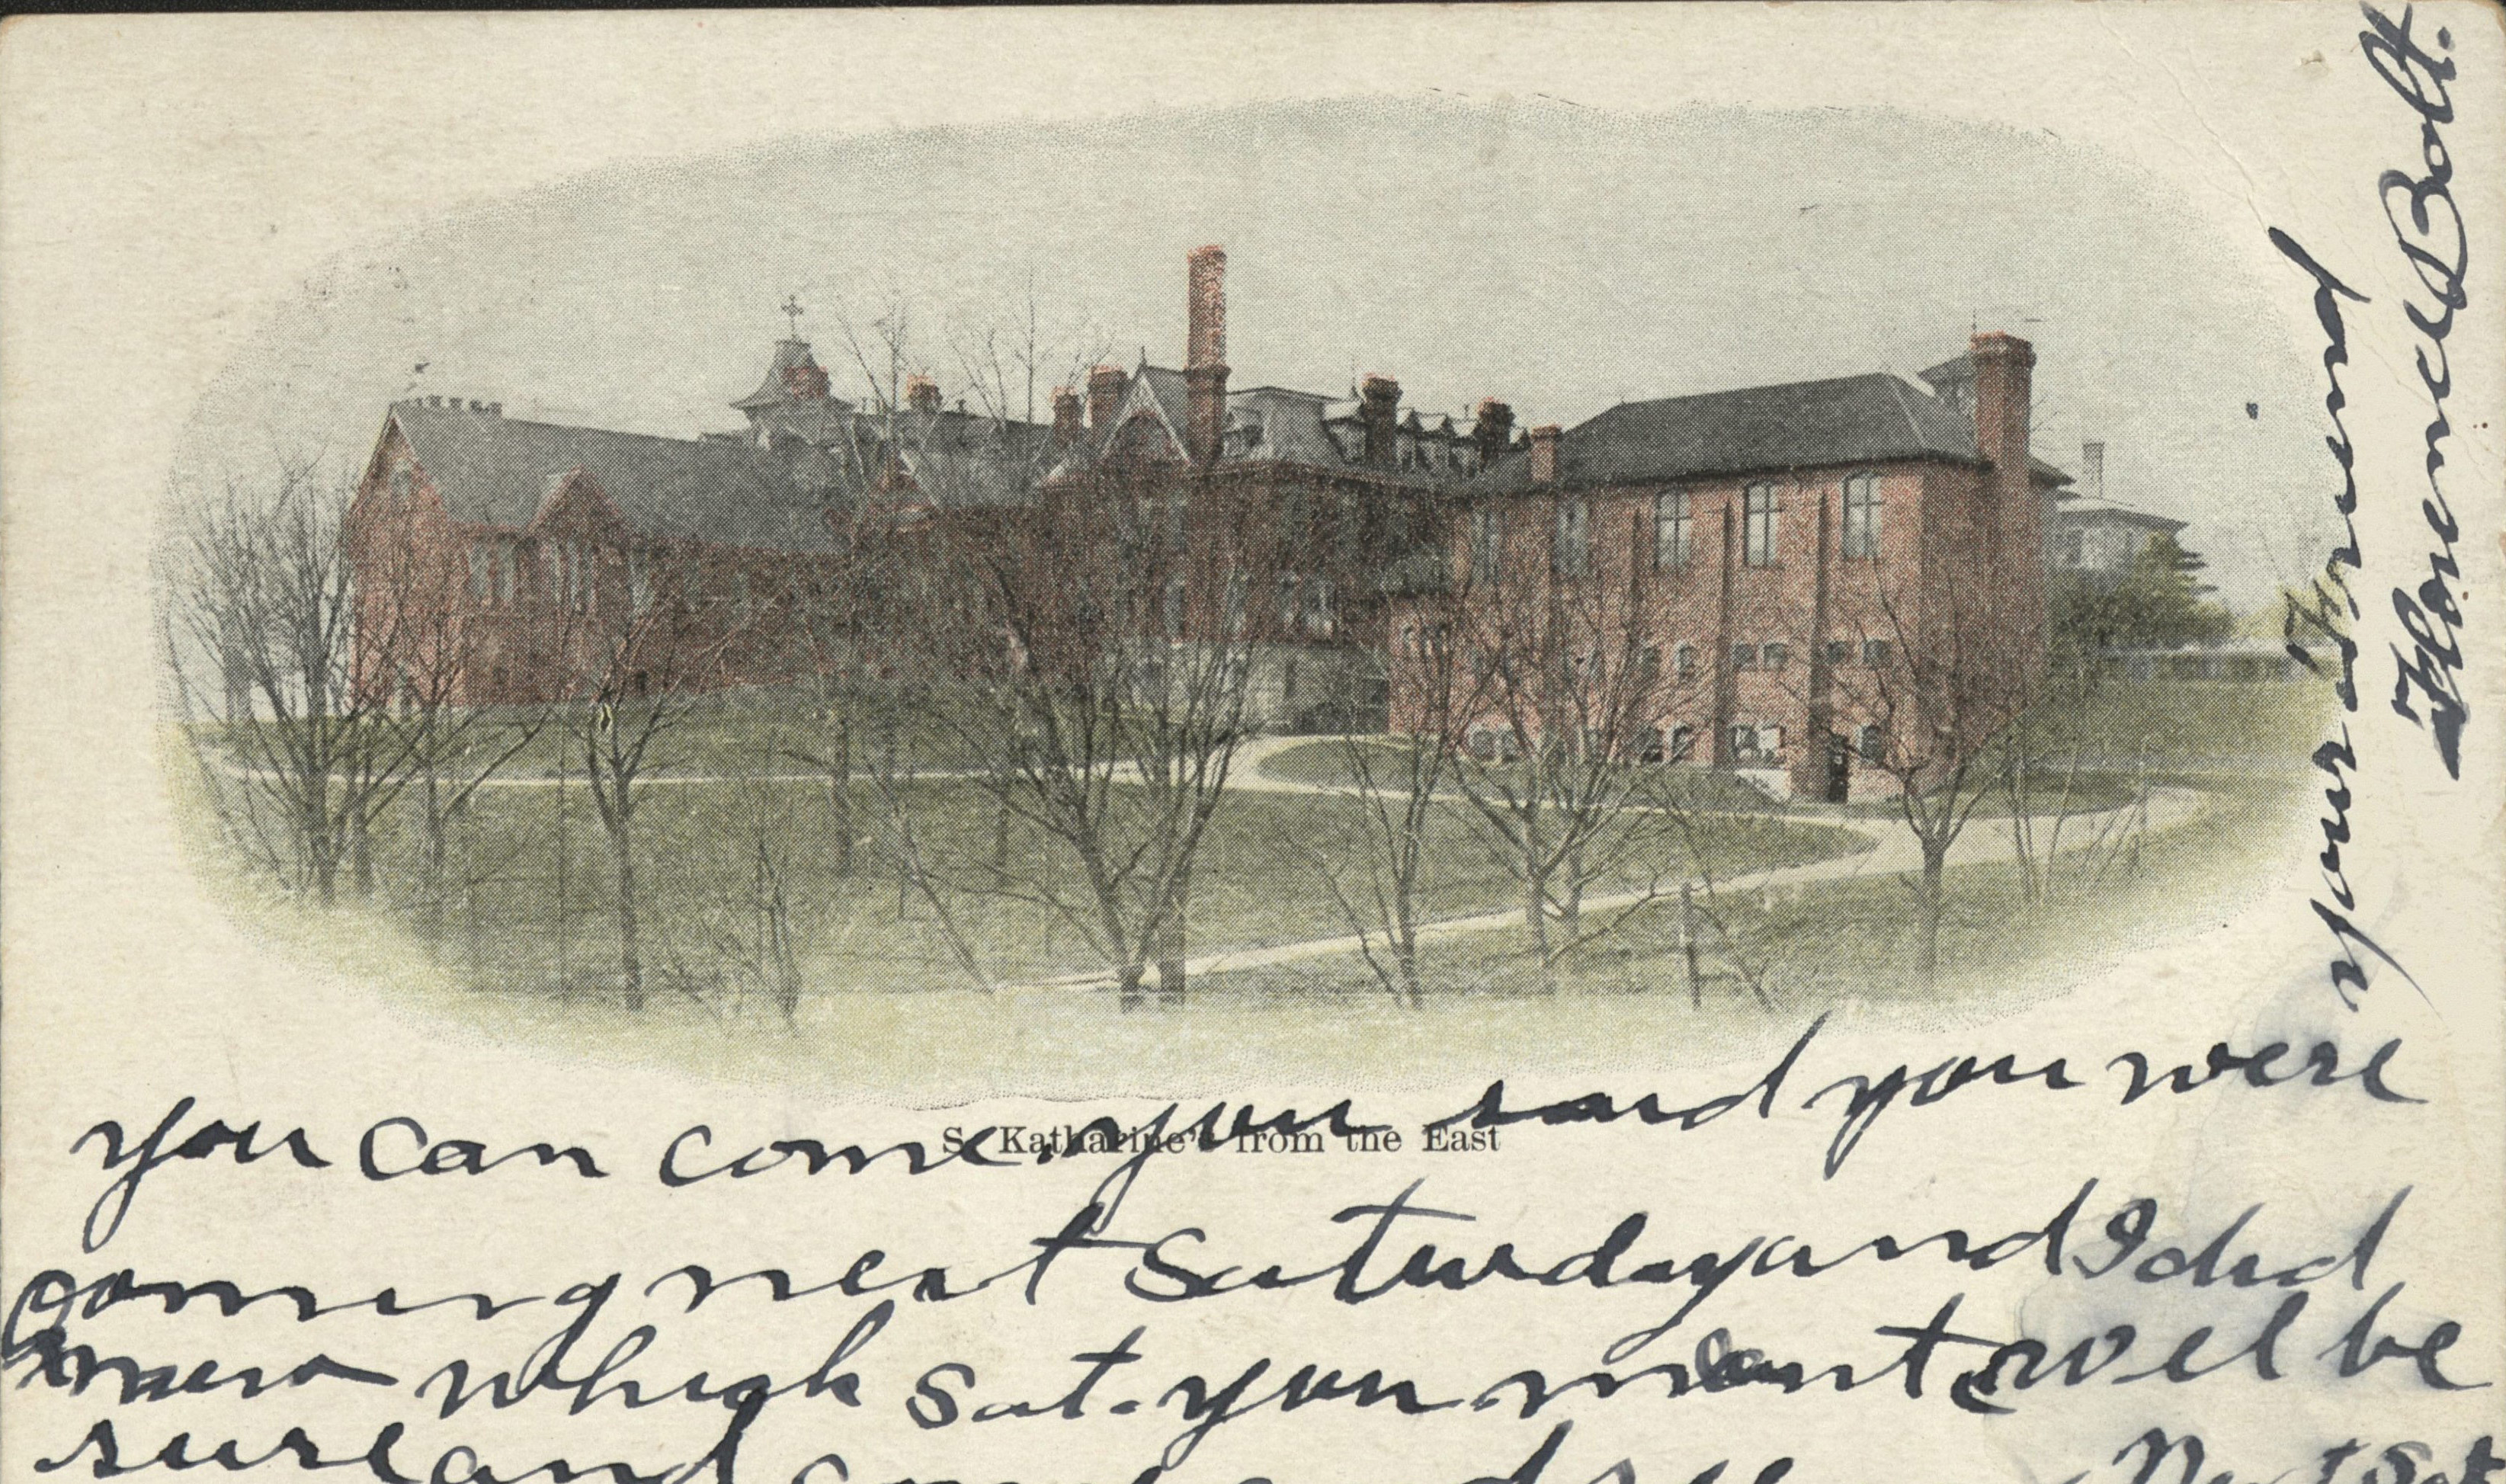 S. Katharine's from the East
you can come. you said you were
coming next Saturday and I did
which Sat. you ment well be
sure and
your Friend
Florence Bolt.